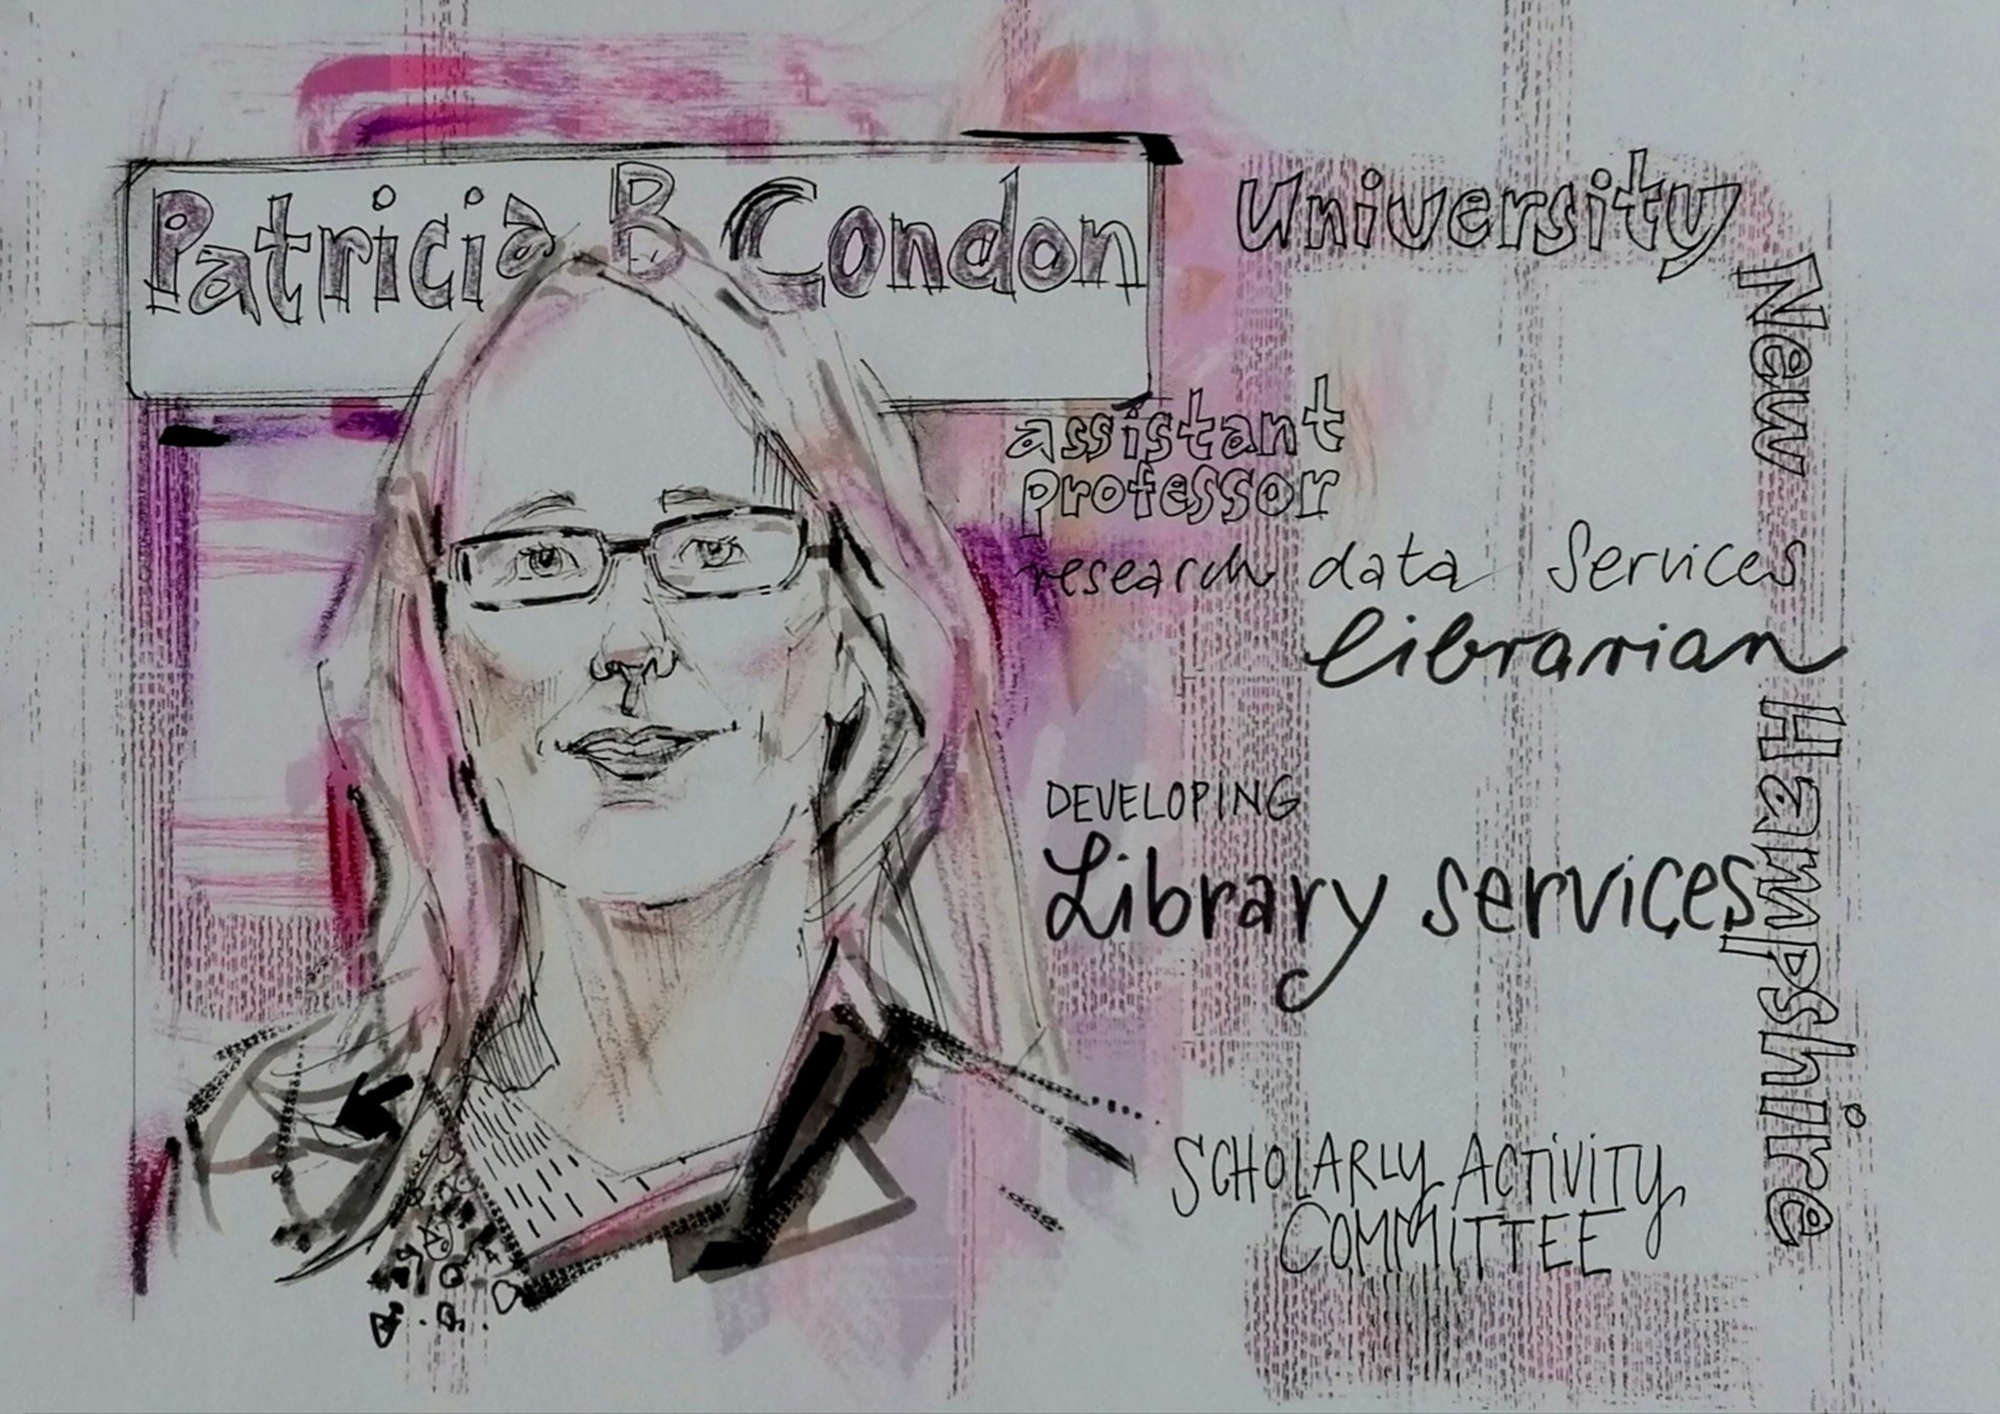 Patricia B Condon
University
New Hampshire
assistant
professor
research data Services
librarian
DEVELOPING
Library services
SCHOLARLY ACTIVITY
COMMITTEE